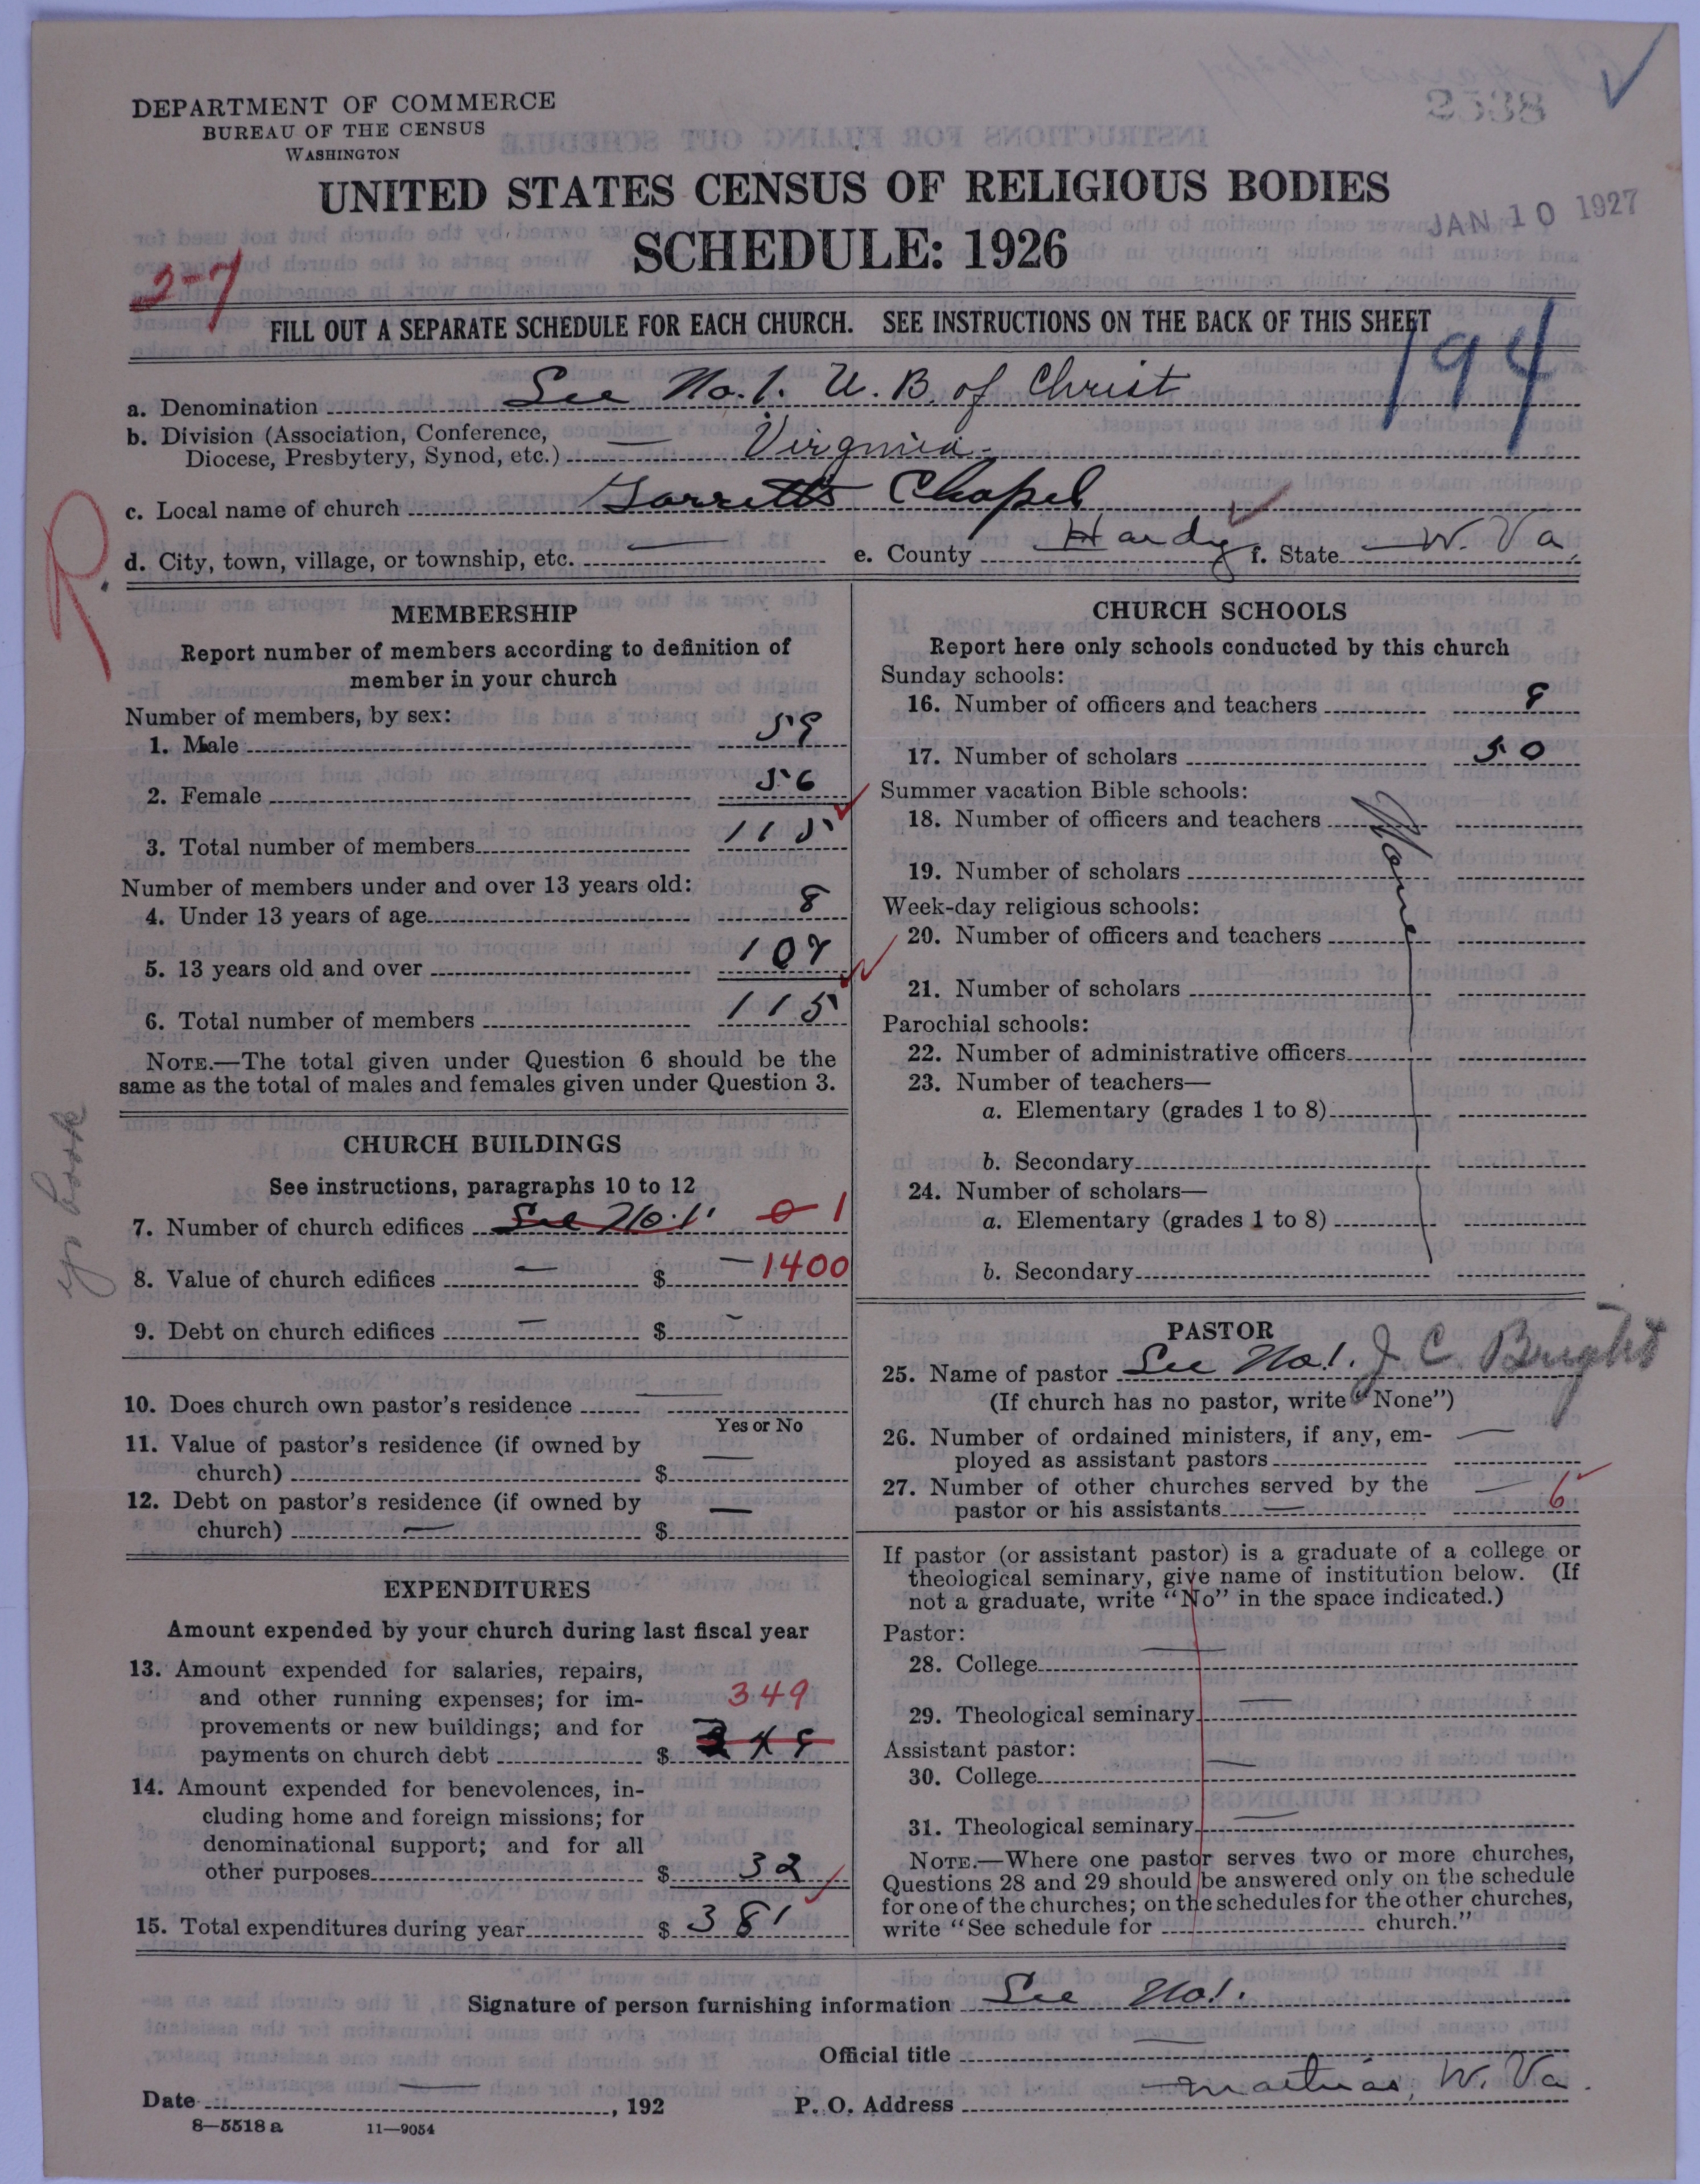 2538
DEPARTMENT OF COMMERCE
BUREAU OF THE CENSUS
WASHINGTON
UNITED STATES CENSUS OF RELIGIOUS BODIES
JAN 10 1927
SCHEDULE: 1926
2-7
FILL OUT A SEPARATE SCHEDULE FOR EACH CHURCH. SEE INSTRUCTIONS ON THE BACK OF THIS SHEET
194
a. Denomination See No. 1. U. B. of Christ
b. Division (Association, Conference,
Diocese, Presbytery, Synod, etc.) — Virginia
c. Local name of church Garretts Chapel
R.
d. City, town, village, or township, etc. — e. County Hardy f. State W. Va.
MEMBERSHIP
Report number of members according to definition of
member in your church
Number of members, by sex:
1. Male 59
2. Female 56
3. Total number of members 115
Number of members under and over 13 years old:
4. Under 13 years of age 8
5. 13 years old and over 107
6. Total number of members 115
NOTE.—The total given under Question 6 should be the
same as the total of males and females given under Question 3.
CHURCH BUILDINGS
See instructions, paragraphs 10 to 12
7. Number of church edifices See No. 1 0 1
8. Value of church edifices — $ — 1400
9. Debt on church edifices — $ —
10. Does church own pastor's residence —
Yes or No
11. Value of pastor's residence (if owned by
church) $ —
12. Debt on pastor's residence (if owned by
church) — $ —
EXPENDITURES
Amount expended by your church during last fiscal year
13. Amount expended for salaries, repairs,
and other running expenses; for im-
provements or new buildings; and for
payments on church debt $ 349
14. Amount expended for benevolences, in-
cluding home and foreign missions; for
denominational support; and for all
other purposes $ 32
15. Total expenditures during year $ 381
CHURCH SCHOOLS
Report here only schools conducted by this church
Sunday schools:
16. Number of officers and teachers 8
17. Number of scholars 50
Summer vacation Bible schools:
18. Number of officers and teachers None
19. Number of scholars
Week-day religious schools:
20. Number of officers and teachers
21. Number of scholars
Parochial schools:
22. Number of administrative officers
23. Number of teachers—
a. Elementary (grades 1 to 8)
b. Secondary
24. Number of scholars—
a. Elementary (grades 1 to 8)
b. Secondary
PASTOR
25. Name of pastor See No 1. J. C. Bright
(If church has no pastor, write "None")
26. Number of ordained ministers, if any, em-
ployed as assistant pastors —
27. Number of other churches served by the
pastor or his assistants — 6
If pastor (or assistant pastor) is a graduate of a college or
theological seminary, give name of institution below. (If
not a graduate, write "No" in the space indicated.)
Pastor:
28. College —
29. Theological seminary —
Assistant pastor:
30. College —
31. Theological seminary —
NOTE.—Where one pastor serves two or more churches,
Questions 28 and 29 should be answered only on the schedule
for one of the churches; on the schedules for the other churches,
write "See schedule for church."
Signature of person furnishing information See No 1.
Official title —
Date —, 192
P. O. Address Mathias, W. Va.
8—5518 a 11—9054